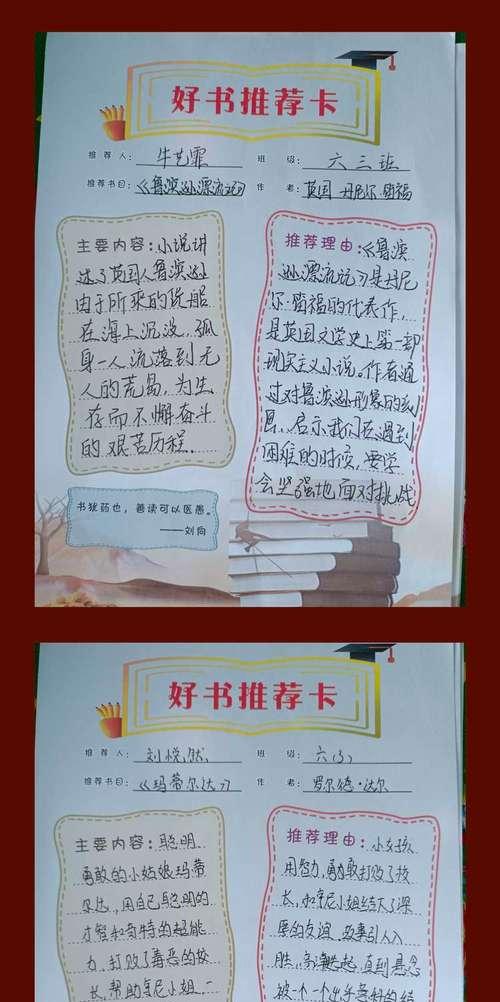 好书推荐卡
推荐人：牛艺霏 班级：六三班
推荐书目：《鲁滨逊漂流记》 作者：英国 丹尼尔·笛福
主要内容：小说讲
述了英国人鲁滨逊
由于所乘的货船
在海上沉没，孤
身一人流落到无
人的荒岛，为生
存而不懈奋斗
的艰苦历程。
推荐理由：《鲁滨
逊漂流记》是丹尼
尔·笛福的代表作，
是英国文学史上第一部
现实主义小说。作者通
过对鲁滨逊形象的刻
启示我们在遇到
困难的时候，要学
会坚强地面对挑战
书犹药也，善读可以医愚。
——刘向
好书推荐卡
推荐人：刘悦然 班级：六（3）
推荐书目：《玛蒂尔达》 作者：罗尔德·达尔
主要内容：聪明
勇敢的小姑娘玛蒂
尔达，用自己聪明的
才智和奇特的超能
力，打败了毒恶的校
长，帮助亨尼小姐，一
推荐理由：小女孩
用智力，勇敢打败了校
长，和亨尼小姐结下了深
厚的友谊，故事引人入
胜，高潮迭起，直到悬念
被一个一个出乎意料的结